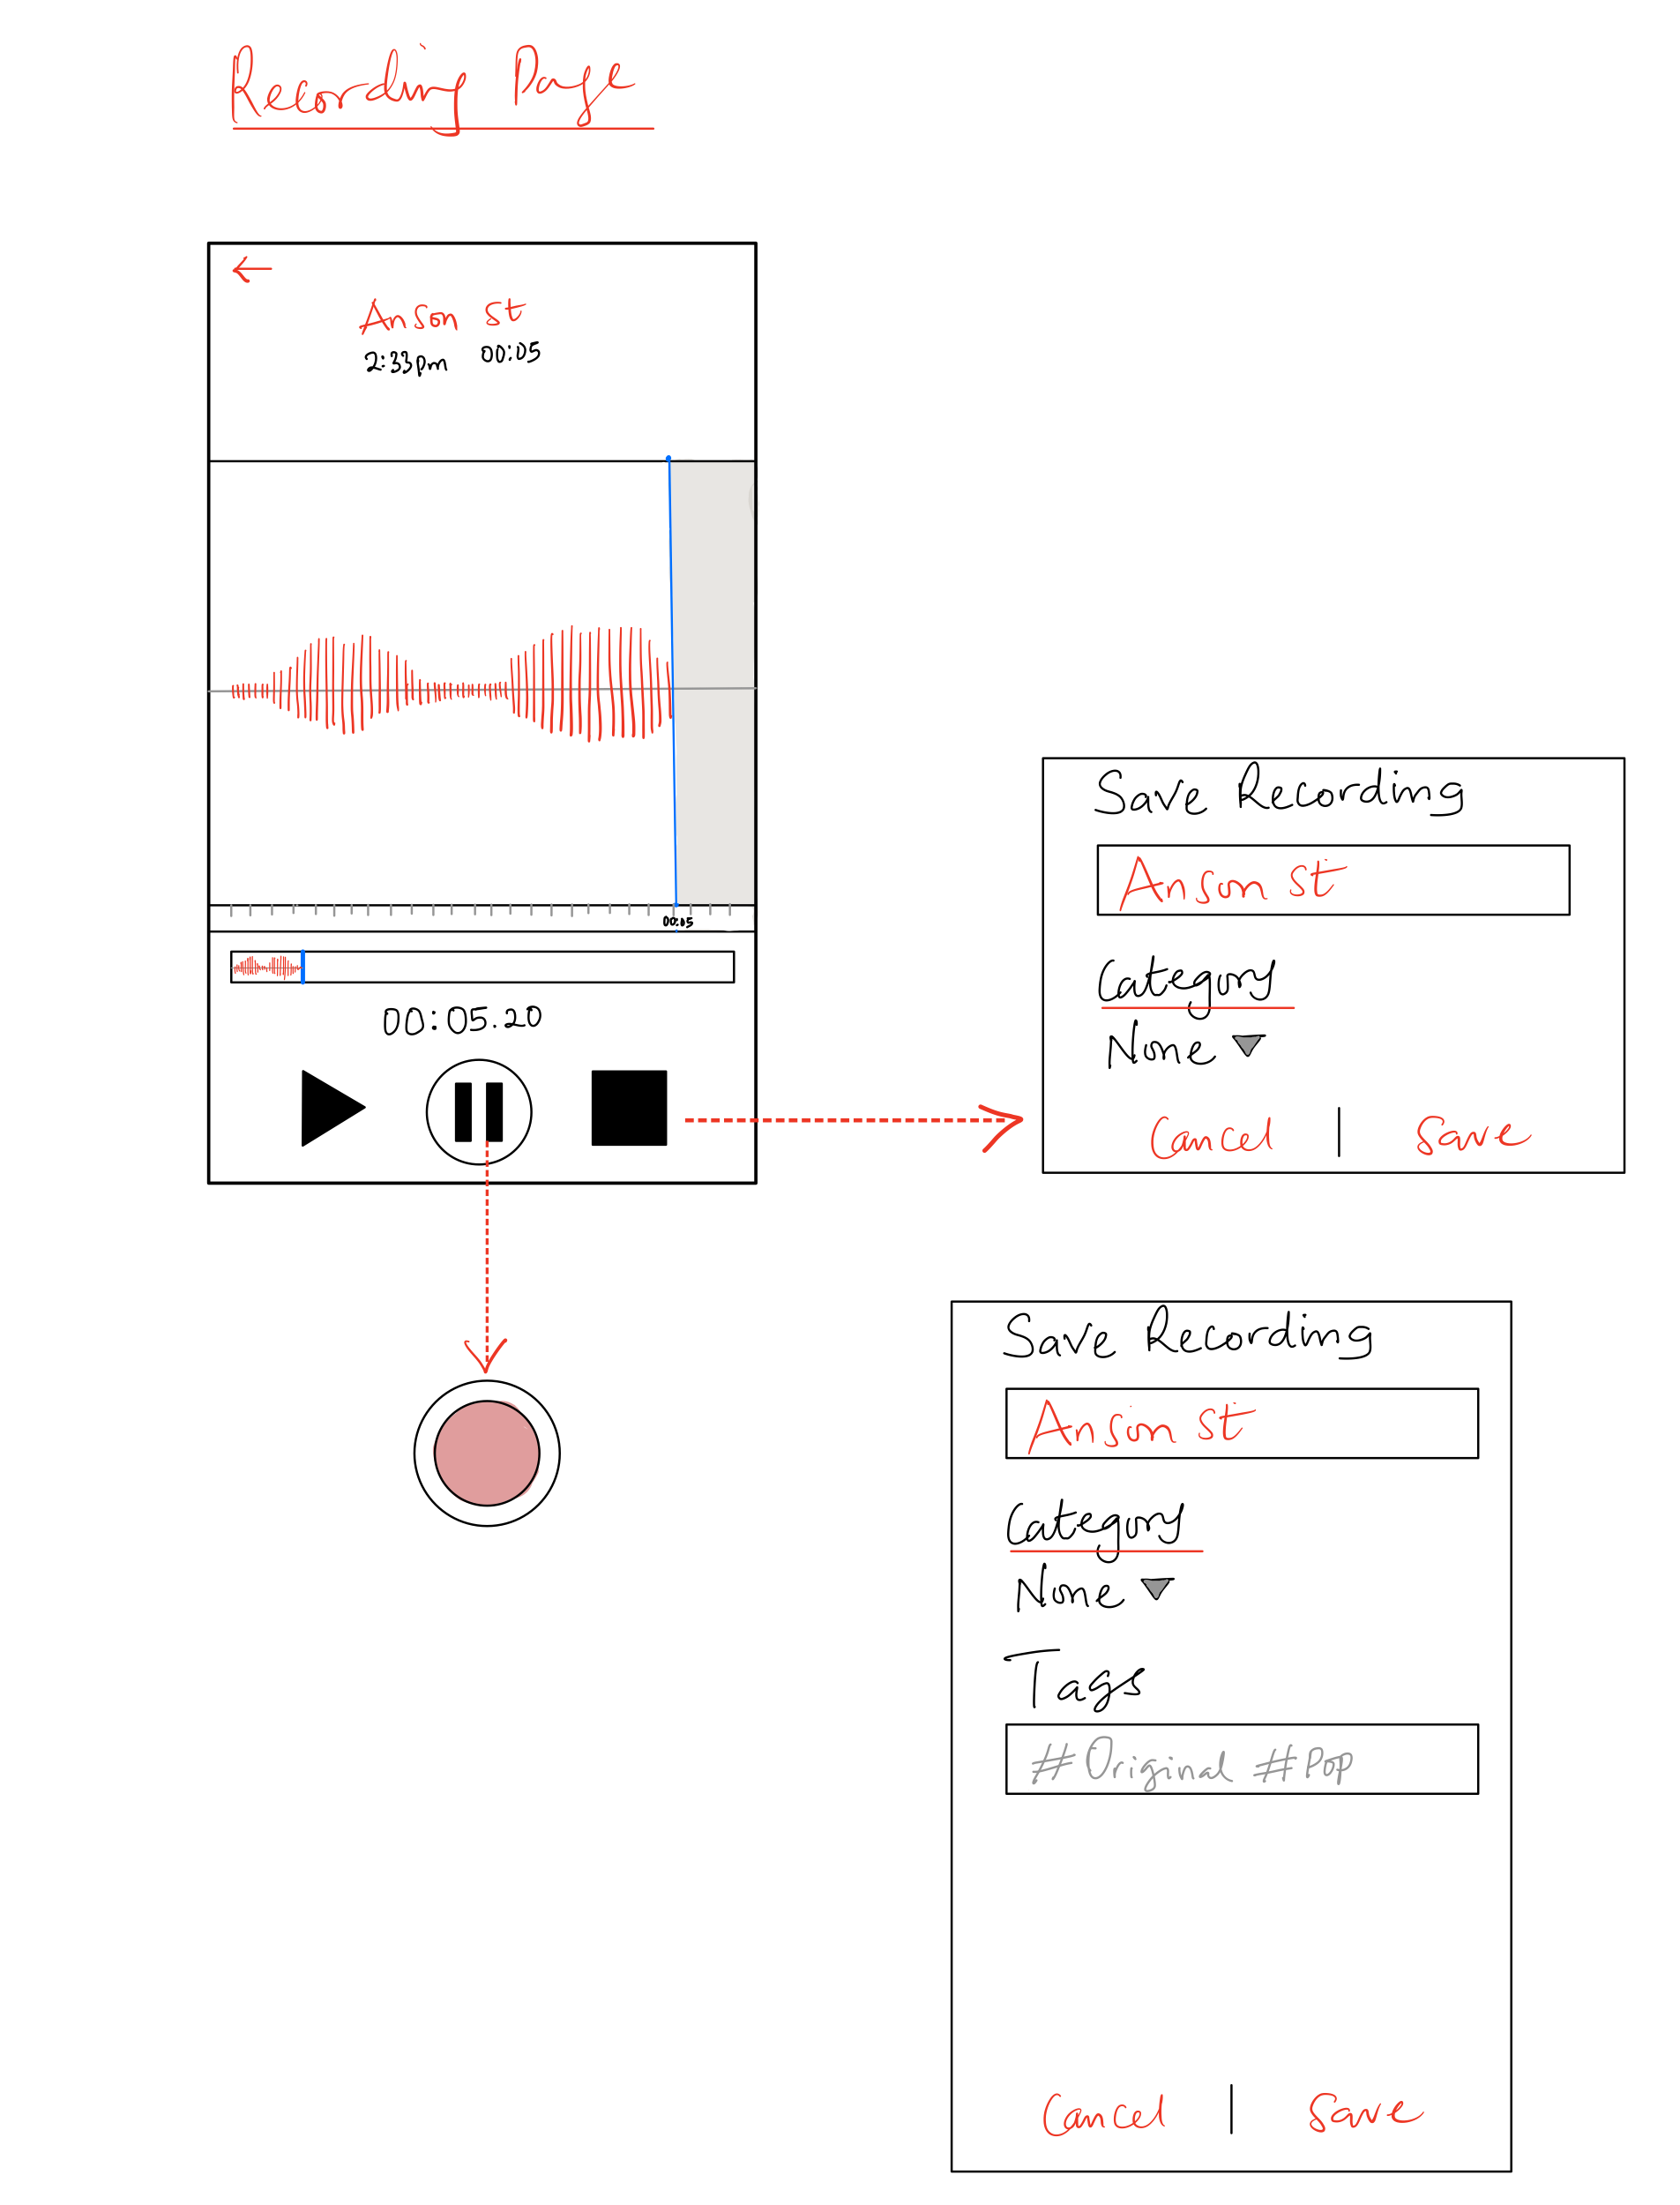 Recording Page
Anson st
2:33pm 00:05
00:05
00:05.20
Save Recording
Anson st
Category
None
Cancel | Save
Save Recording
Anson st
Category
None
Tags
#Original #Pop
Cancel | Save